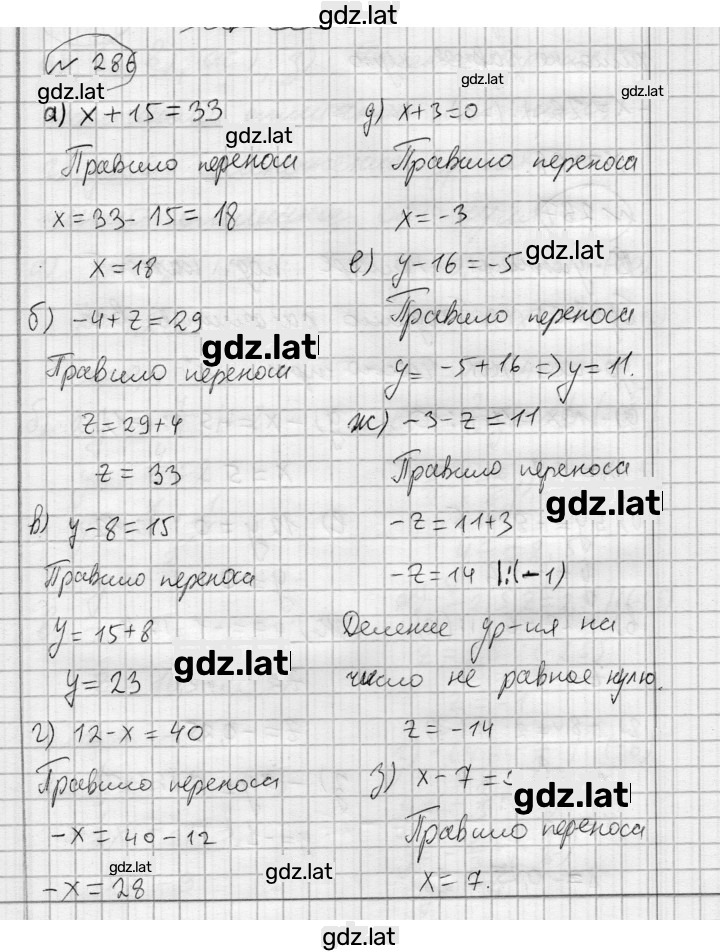 gdz.lat
№ 286
gdz.lat
а) x + 15 = 33
gdz.lat
Правило переноса
x = 33 - 15 = 18
x = 18
б) -4 + z = 29
gdz.lat
Правило переноса
z = 29 + 4
z = 33
в) y - 8 = 15
Правило переноса
y = 15 + 8
gdz.lat
y = 23
г) 12 - x = 40
Правило переноса
-x = 40 - 12
gdz.lat
-x = 28
gdz.lat
gdz.lat
gdz.lat
д) x + 3 = 0
Правило переноса
x = -3
е) y - 16 = -5
gdz.lat
Правило переноса
y = -5 + 16 => y = 11.
ж) -3 - z = 11
Правило переноса
gdz.lat
-z = 11 + 3
-z = 14 |:(-1)
Деление ур-ия на
число не равное нулю.
z = -14
з) x - 7 =
gdz.lat
Правило переноса
x = 7.
gdz.lat